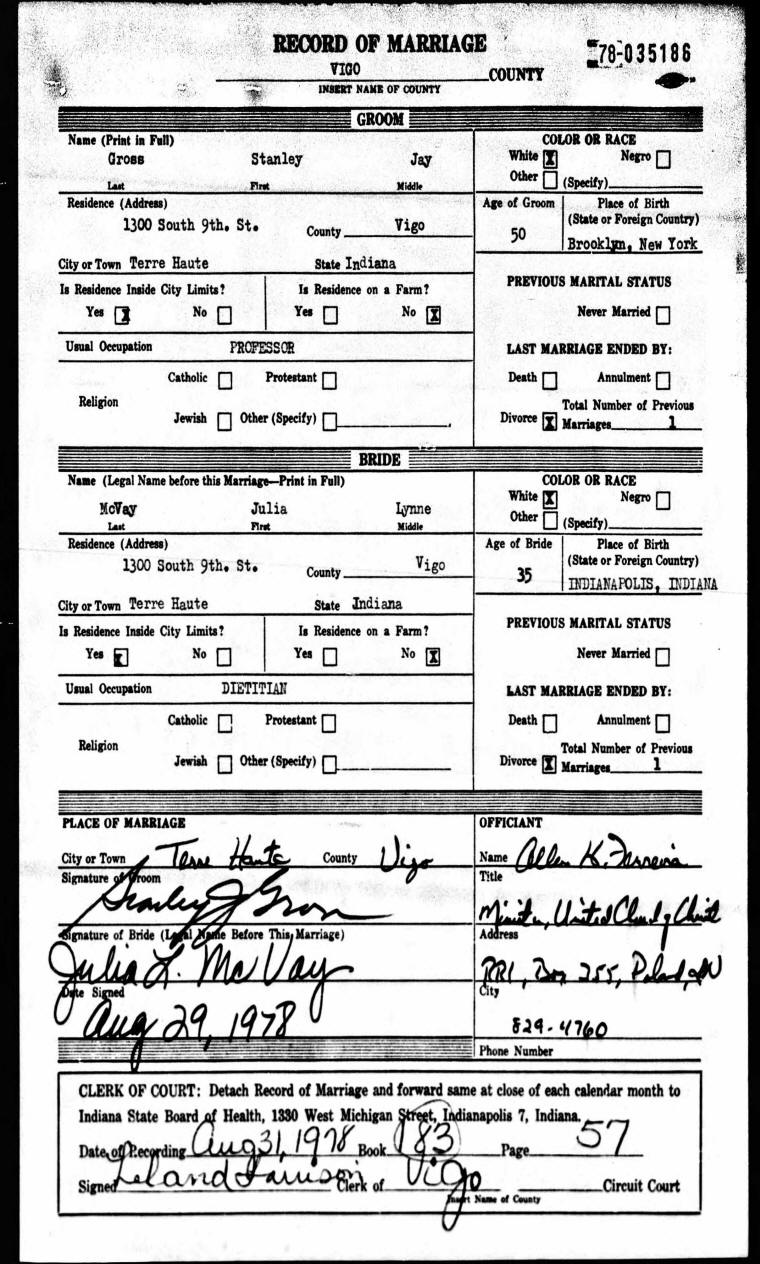 RECORD OF MARRIAGE
78-035186
VIGO COUNTY
INSERT NAME OF COUNTY
GROOM
Name (Print in Full)
Gross Stanley Jay
Last First Middle
COLOR OR RACE
White X Negro
Other (Specify)
Residence (Address)
1300 South 9th. St. County Vigo
City or Town Terre Haute State Indiana
Age of Groom
50
Place of Birth
(State or Foreign Country)
Brooklyn, New York
Is Residence Inside City Limits?
Yes X No
Is Residence on a Farm?
Yes No X
PREVIOUS MARITAL STATUS
Never Married
Usual Occupation PROFESSOR
LAST MARRIAGE ENDED BY:
Religion
Catholic Protestant
Jewish Other (Specify)
Death Annulment
Divorce X
Total Number of Previous
Marriages 1
BRIDE
Name (Legal Name before this Marriage—Print in Full)
McVay Julia Lynne
Last First Middle
COLOR OR RACE
White X Negro
Other (Specify)
Residence (Address)
1300 South 9th. St. County Vigo
City or Town Terre Haute State Indiana
Age of Bride
35
Place of Birth
(State or Foreign Country)
INDIANAPOLIS, INDIANA
Is Residence Inside City Limits?
Yes X No
Is Residence on a Farm?
Yes No X
PREVIOUS MARITAL STATUS
Never Married
Usual Occupation DIETITIAN
LAST MARRIAGE ENDED BY:
Religion
Catholic Protestant
Jewish Other (Specify)
Death Annulment
Divorce X
Total Number of Previous
Marriages 1
PLACE OF MARRIAGE
City or Town Terre Haute County Vigo
Signature of Groom
Stanley J Gross
Signature of Bride (Legal Name Before This Marriage)
Julia L. McVay
Date Signed
Aug 29, 1978
OFFICIANT
Name Allen K. Ferreira
Title
Minister, United Church of Christ
Address
RR1, Box 255, Poland, IN
City
829-4760
Phone Number
CLERK OF COURT: Detach Record of Marriage and forward same at close of each calendar month to
Indiana State Board of Health, 1330 West Michigan Street, Indianapolis 7, Indiana.
Date of Recording Aug 31, 1978 Book 183 Page 57
Signed Leland Larrison Clerk of Vigo Circuit Court
Insert Name of County